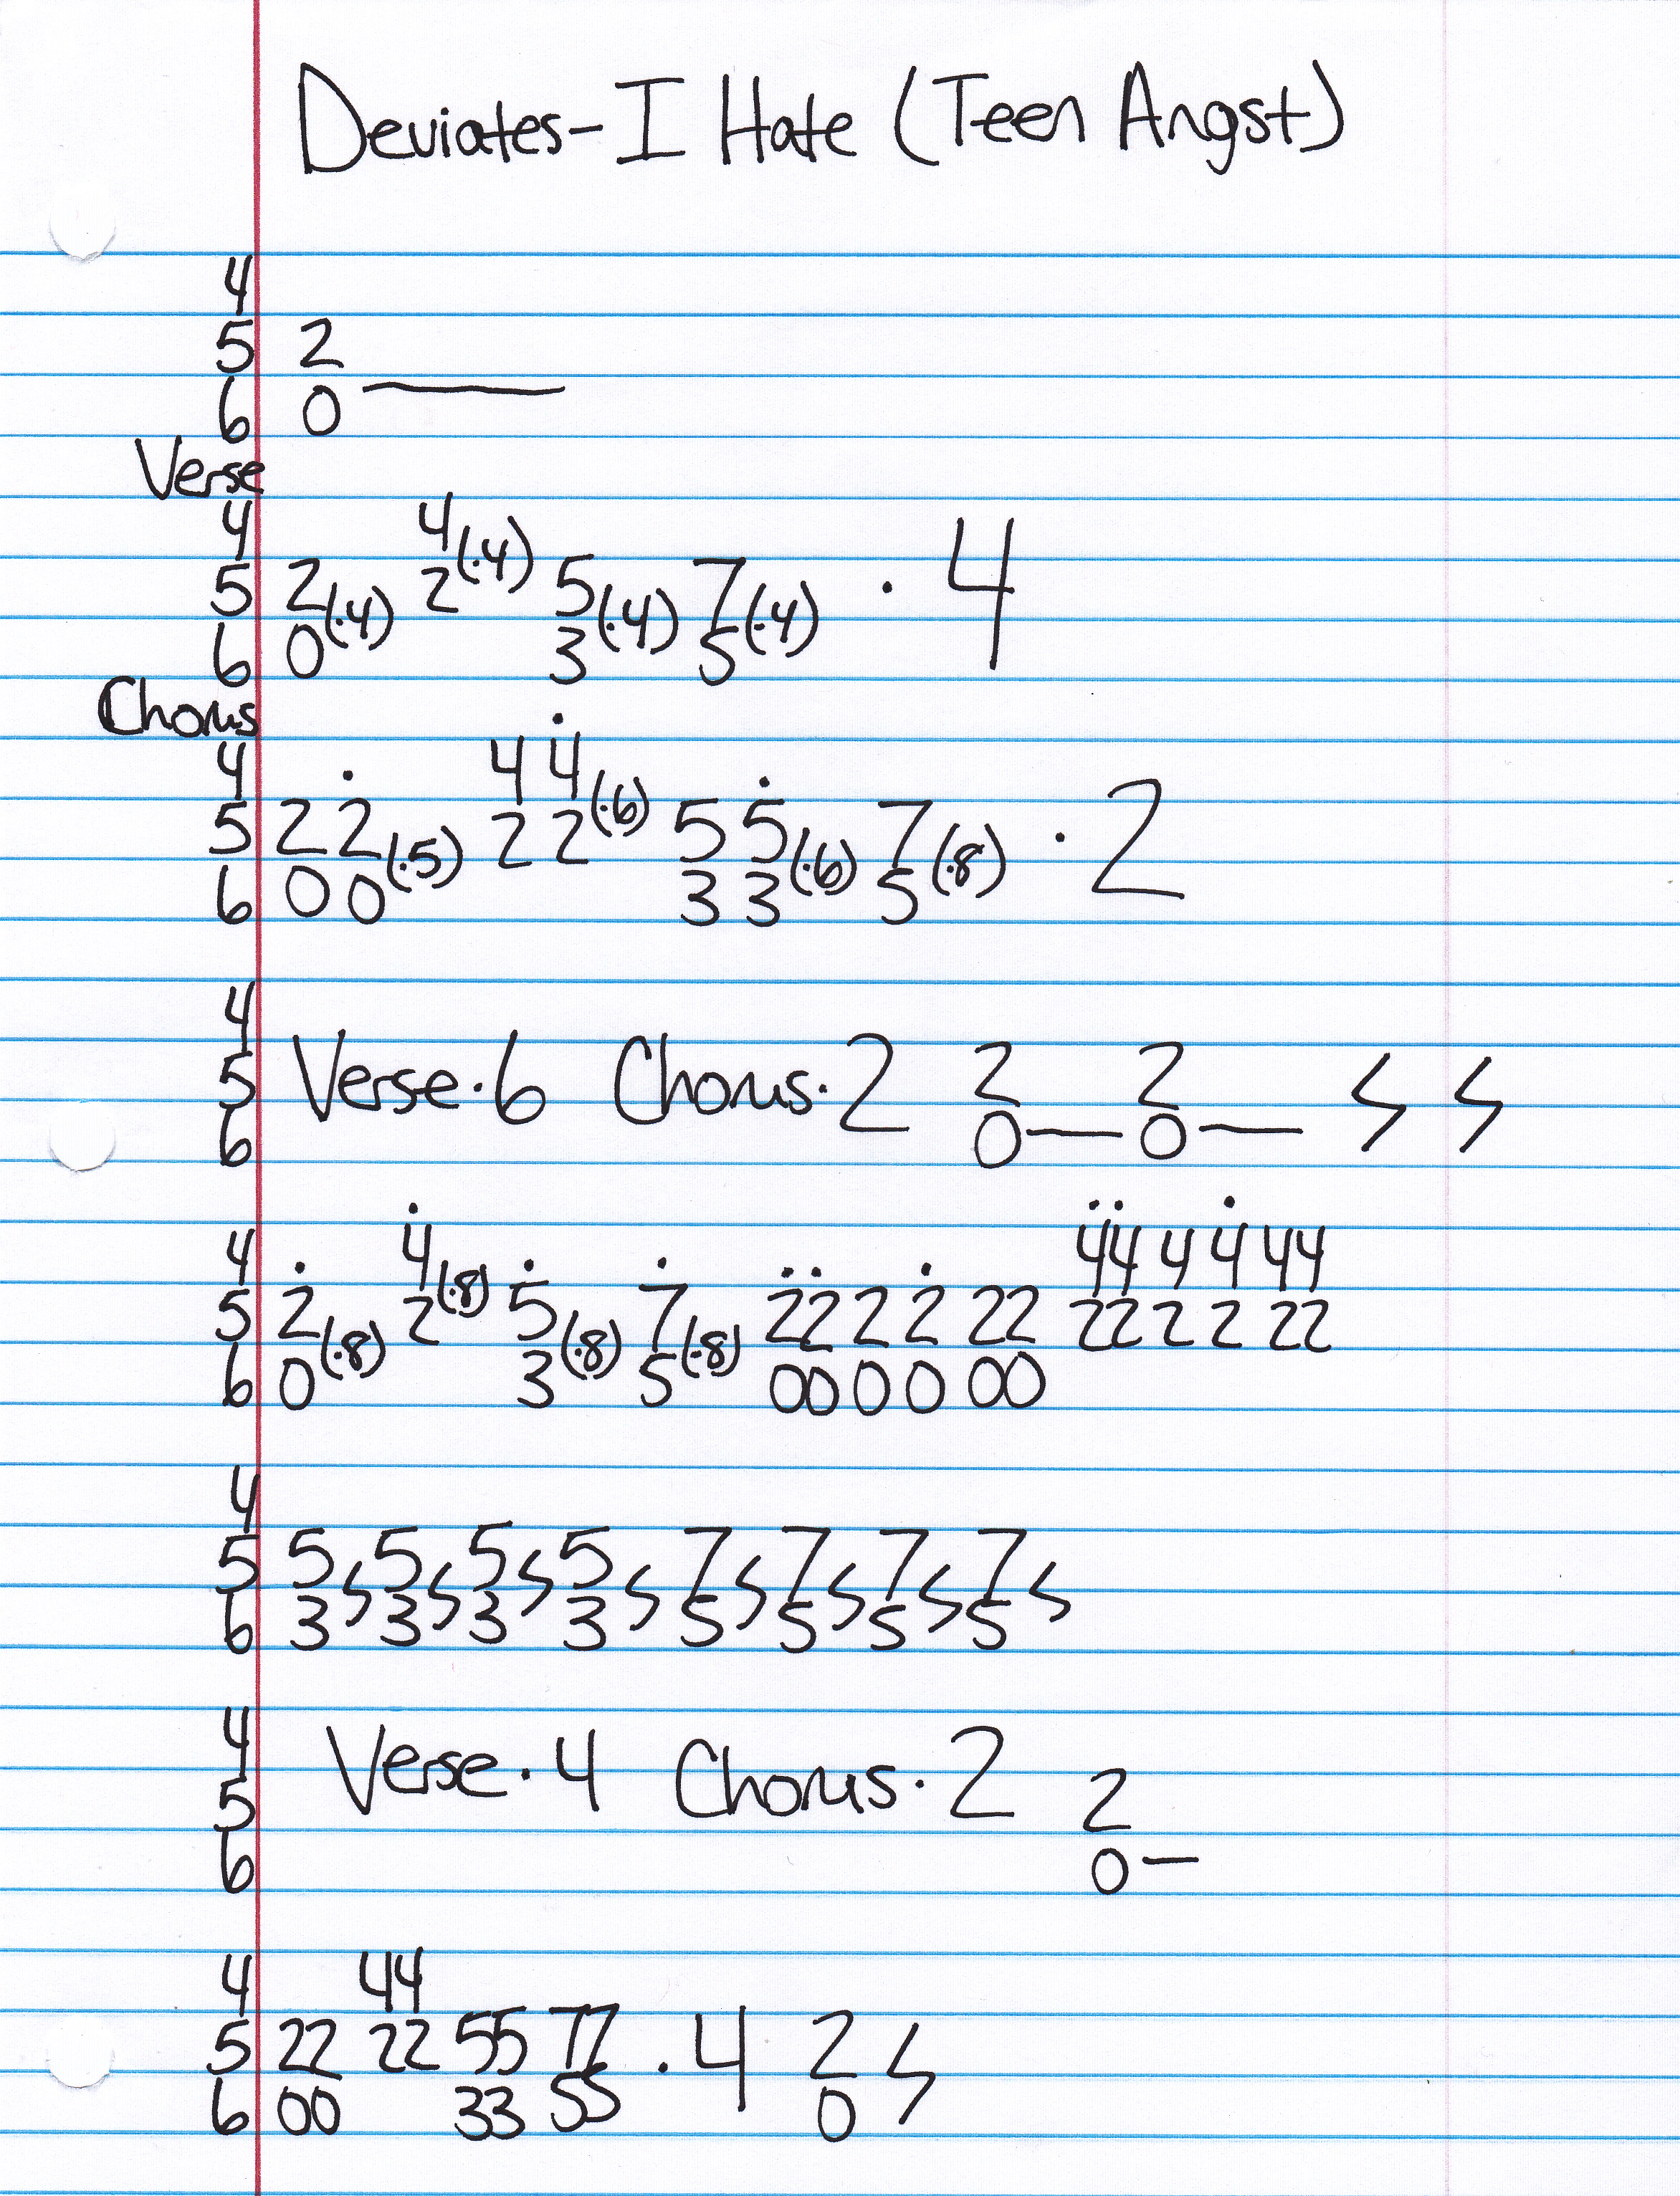 Deviates-I Hate (Teen Angst)
4
5 2
6 0 ——
Verse
4 4(·4)
5 2(·4) 2 5(·4) 7(·4) · 4
6 0 3 5
Chorus
4 4 4̇
5 2 2̇(·5) 2 2(·6) 5 5̇(·6) 7(·8) · 2
6 0 0 3 3 5
4
5 Verse·6 Chorus·2 2 2 ϟ ϟ
6 0— 0—
4 4̇(·8) 4̇4̇ 4 4̇ 44
5 2̇(·8) 2 5̇(·8) 7̇(·8) 2̇2̇ 2 2̇ 22 22 2 2 22
6 0 3 5 00 0 0 00
4
5 5 ϟ 5 ϟ 5 ϟ 5 ϟ 7 ϟ 7 ϟ 7 ϟ 7 ϟ
6 3 3 3 3 5 5 5 5
4 Verse·4 Chorus·2
5 2
6 0—
4 44
5 22 22 55 77 · 4 2 ϟ
6 00 33 55 0